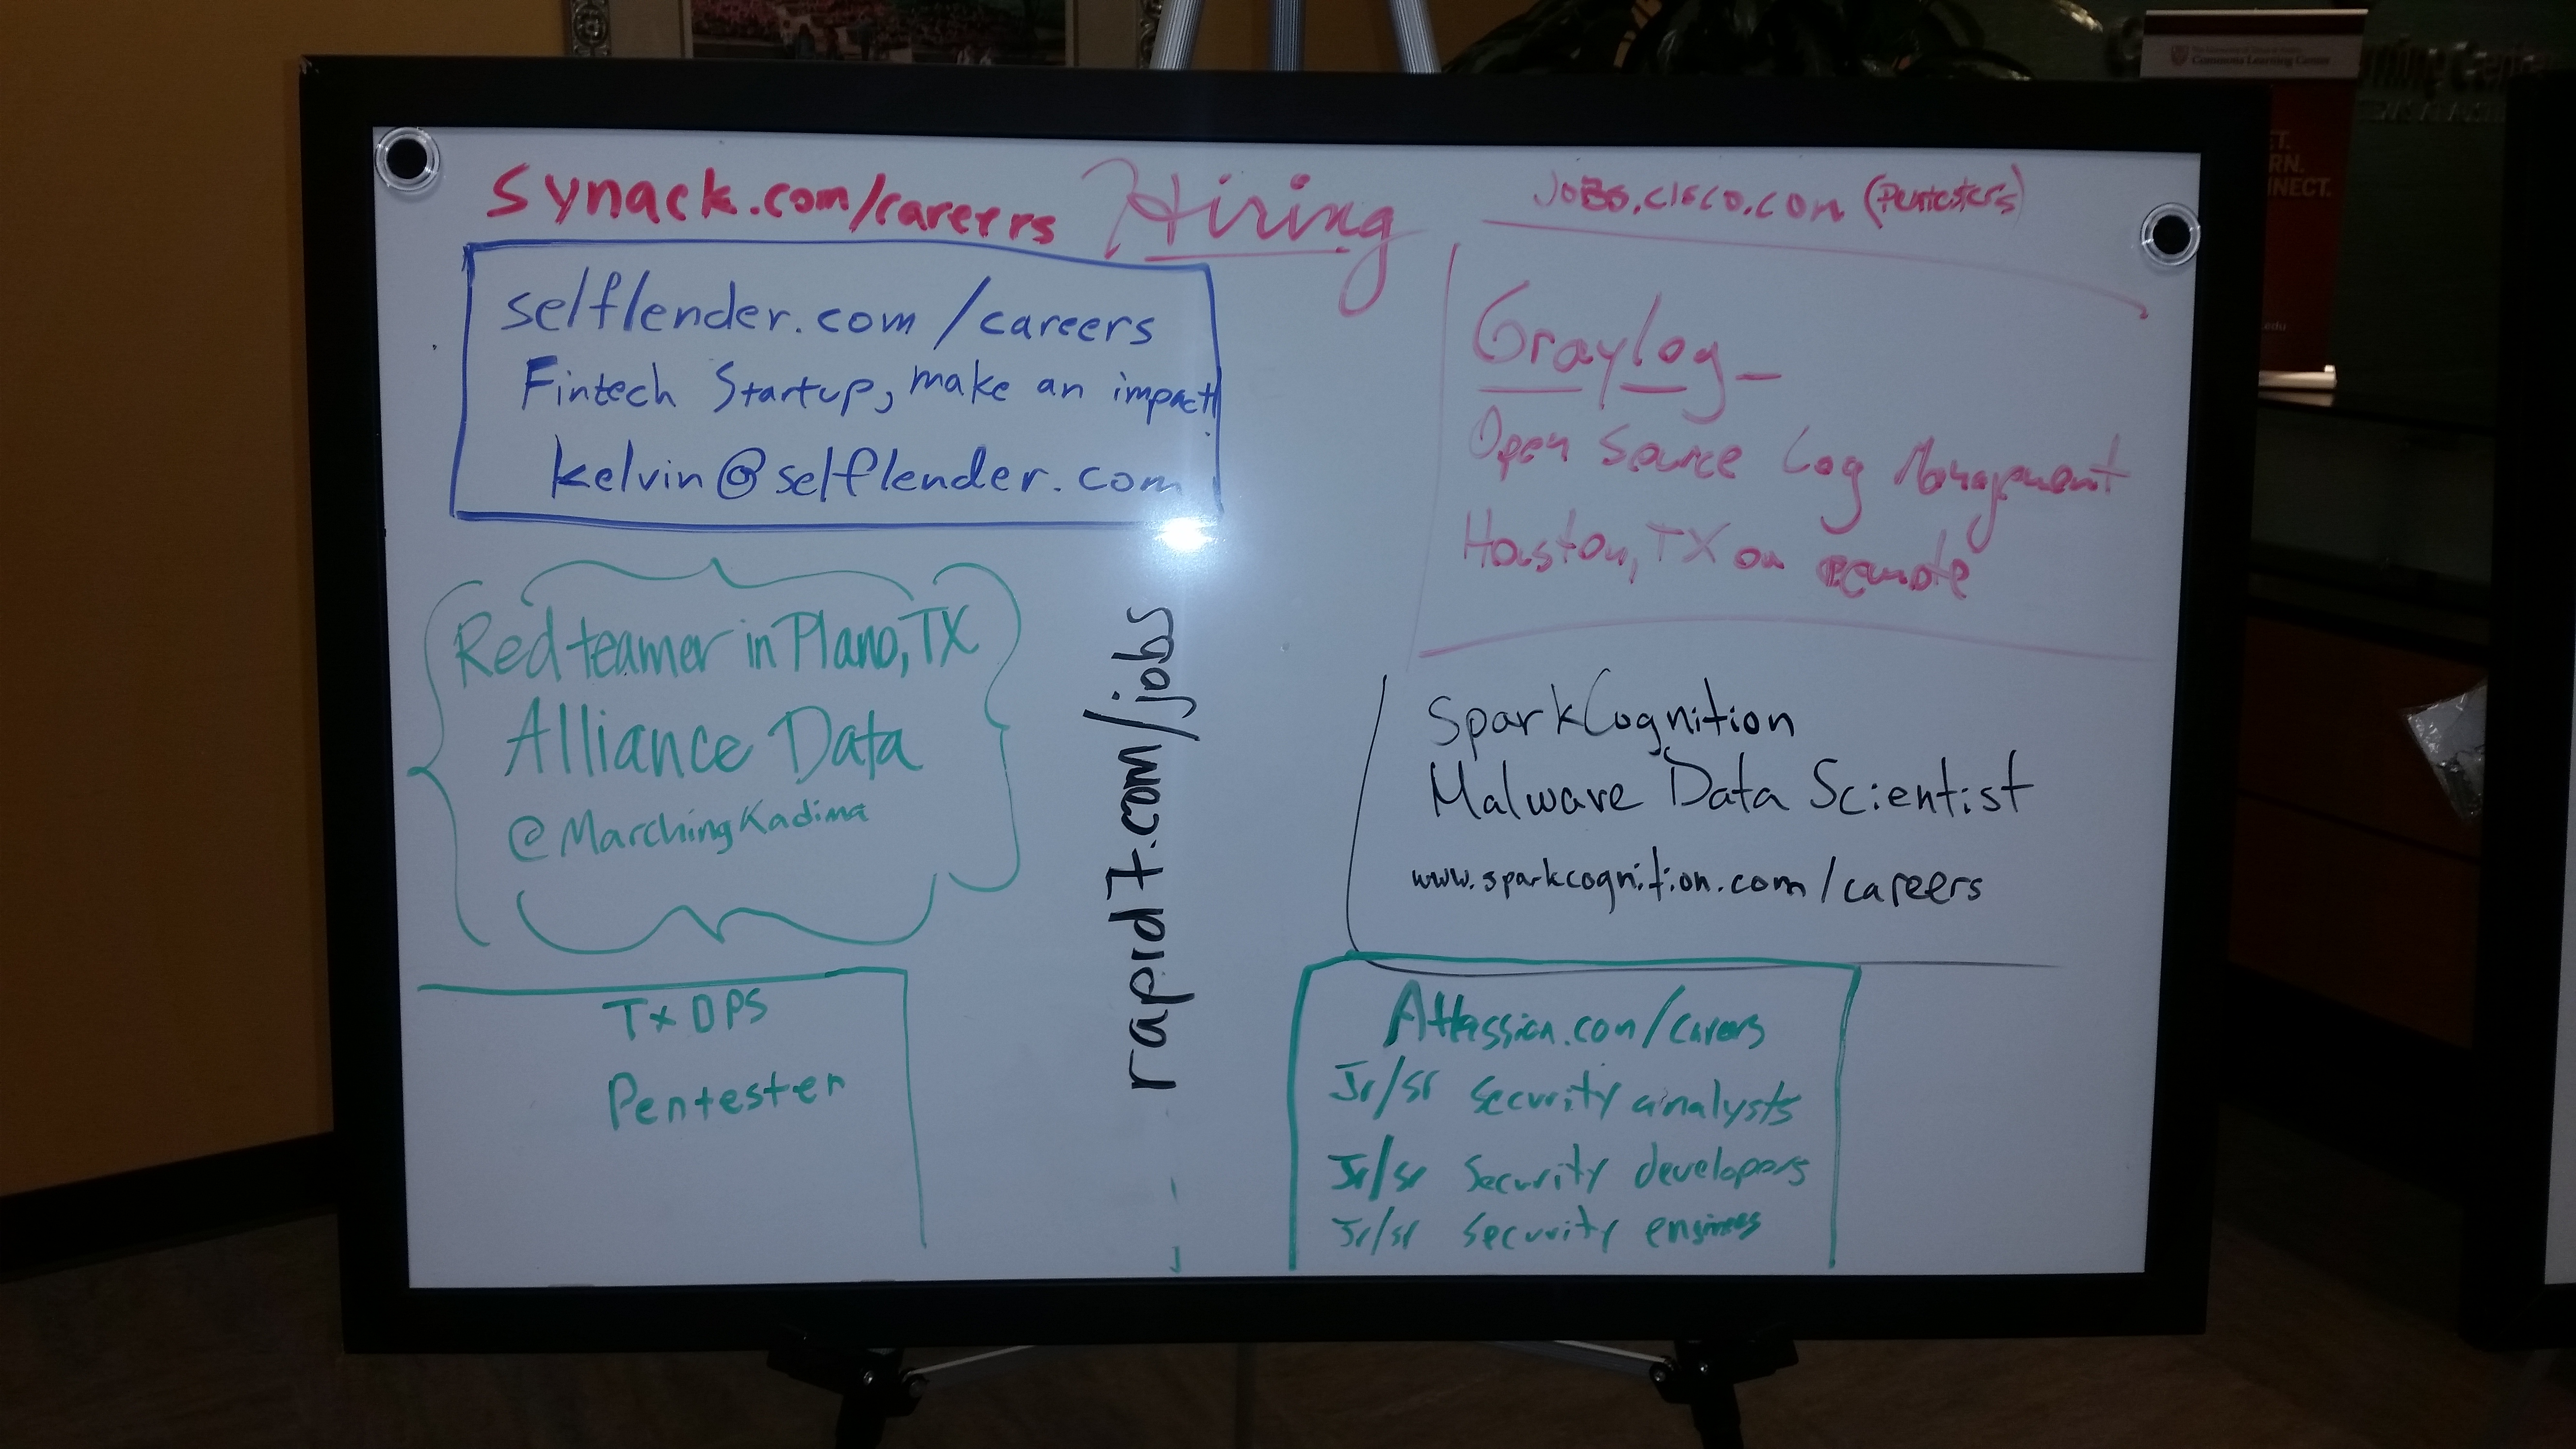 synack.com/careers
Hiring
JOBS.CISCO.COM (Pentesters)
selflender.com/careers
Fintech Startup, make an impact!
kelvin@selflender.com
Graylog-
Open Source Log Management
Houston, TX or remote
Red teamer in Plano, TX
Alliance Data
@MarchingKadima
rapid7.com/jobs
SparkCognition
Malware Data Scientist
www.sparkcognition.com/careers
Tx DPS
Pentester
Atlassian.com/careers
Jr/sr security analysts
Jr/sr security developers
Jr/sr security engineers
Commons Learning Center
NNECT.
.edu